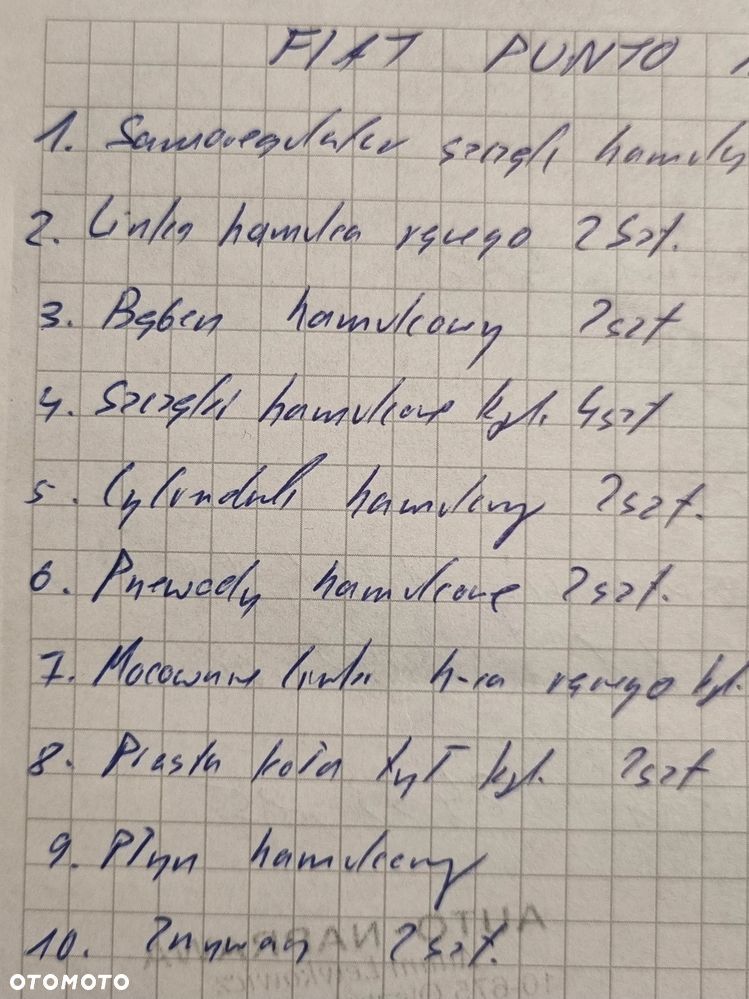 FIAT PUNTO
1. Samoregulator szczęk hamulcy
2. Linka hamulca ręcznego 2 szt.
3. Bęben hamulcowy 2szt
4. Szczęki hamulcowe kpl. 4szt
5. Cylinderki hamulcowy 2szt.
6. Przewody hamulcowe 2szt.
7. Mocowanie linki h-ca ręcznego kpl.
8. Piasta koła tył kpl. 2szt
9. Płyn hamulcowy
10. Zmywacz 2szt.
AUTO NAPRAWA
OTOMOTO